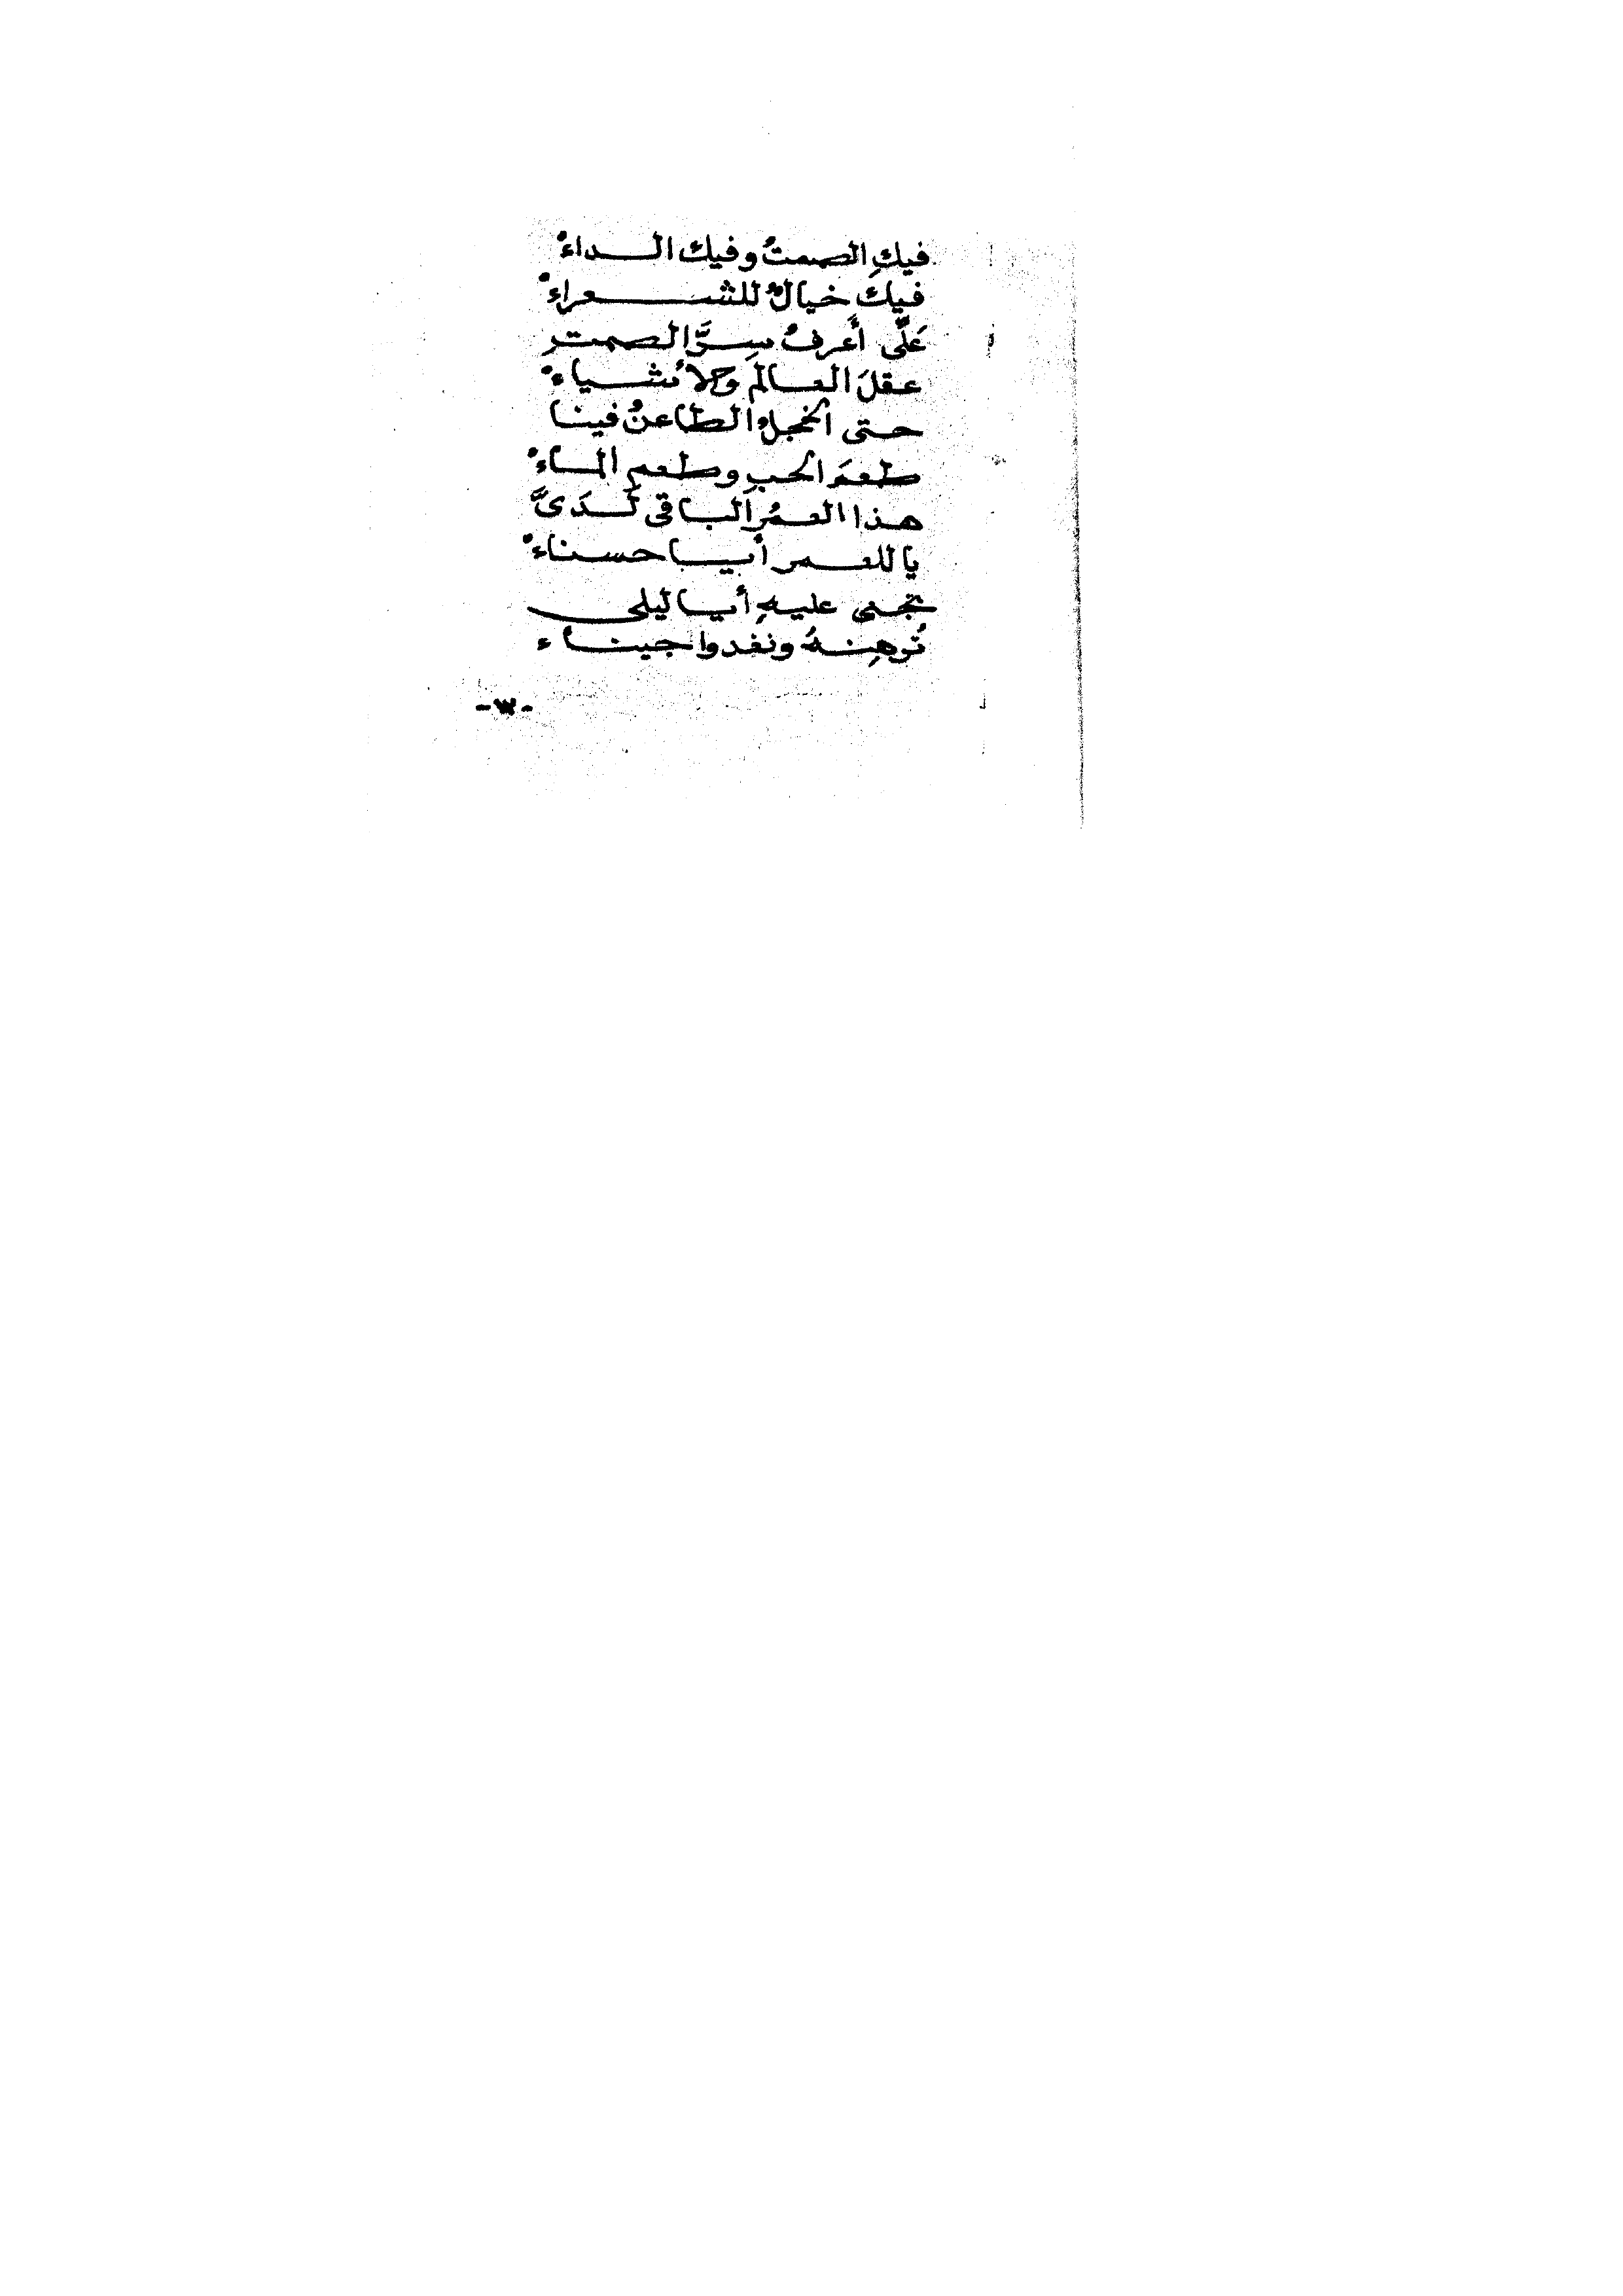 فيكِ الصمتُ وفيك الداءْ
فيك خيالٌ للشعراءْ
عَلّى أعرفُ سِرَّ الصمتِ
عقلَ العالمَ وَالأشياءْ
حتى الخجلُ الطاعنُ فينا
طعمَ الحبِ وطعم الماءْ
هذا العمُر الباقى لَدَىَّ
يا للعمر أيا حسناءْ
تجنى عليهِ أيا ليلى
تُرهِنهُ ونغدوا جيناء